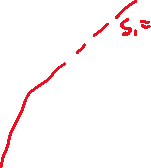 S₁=